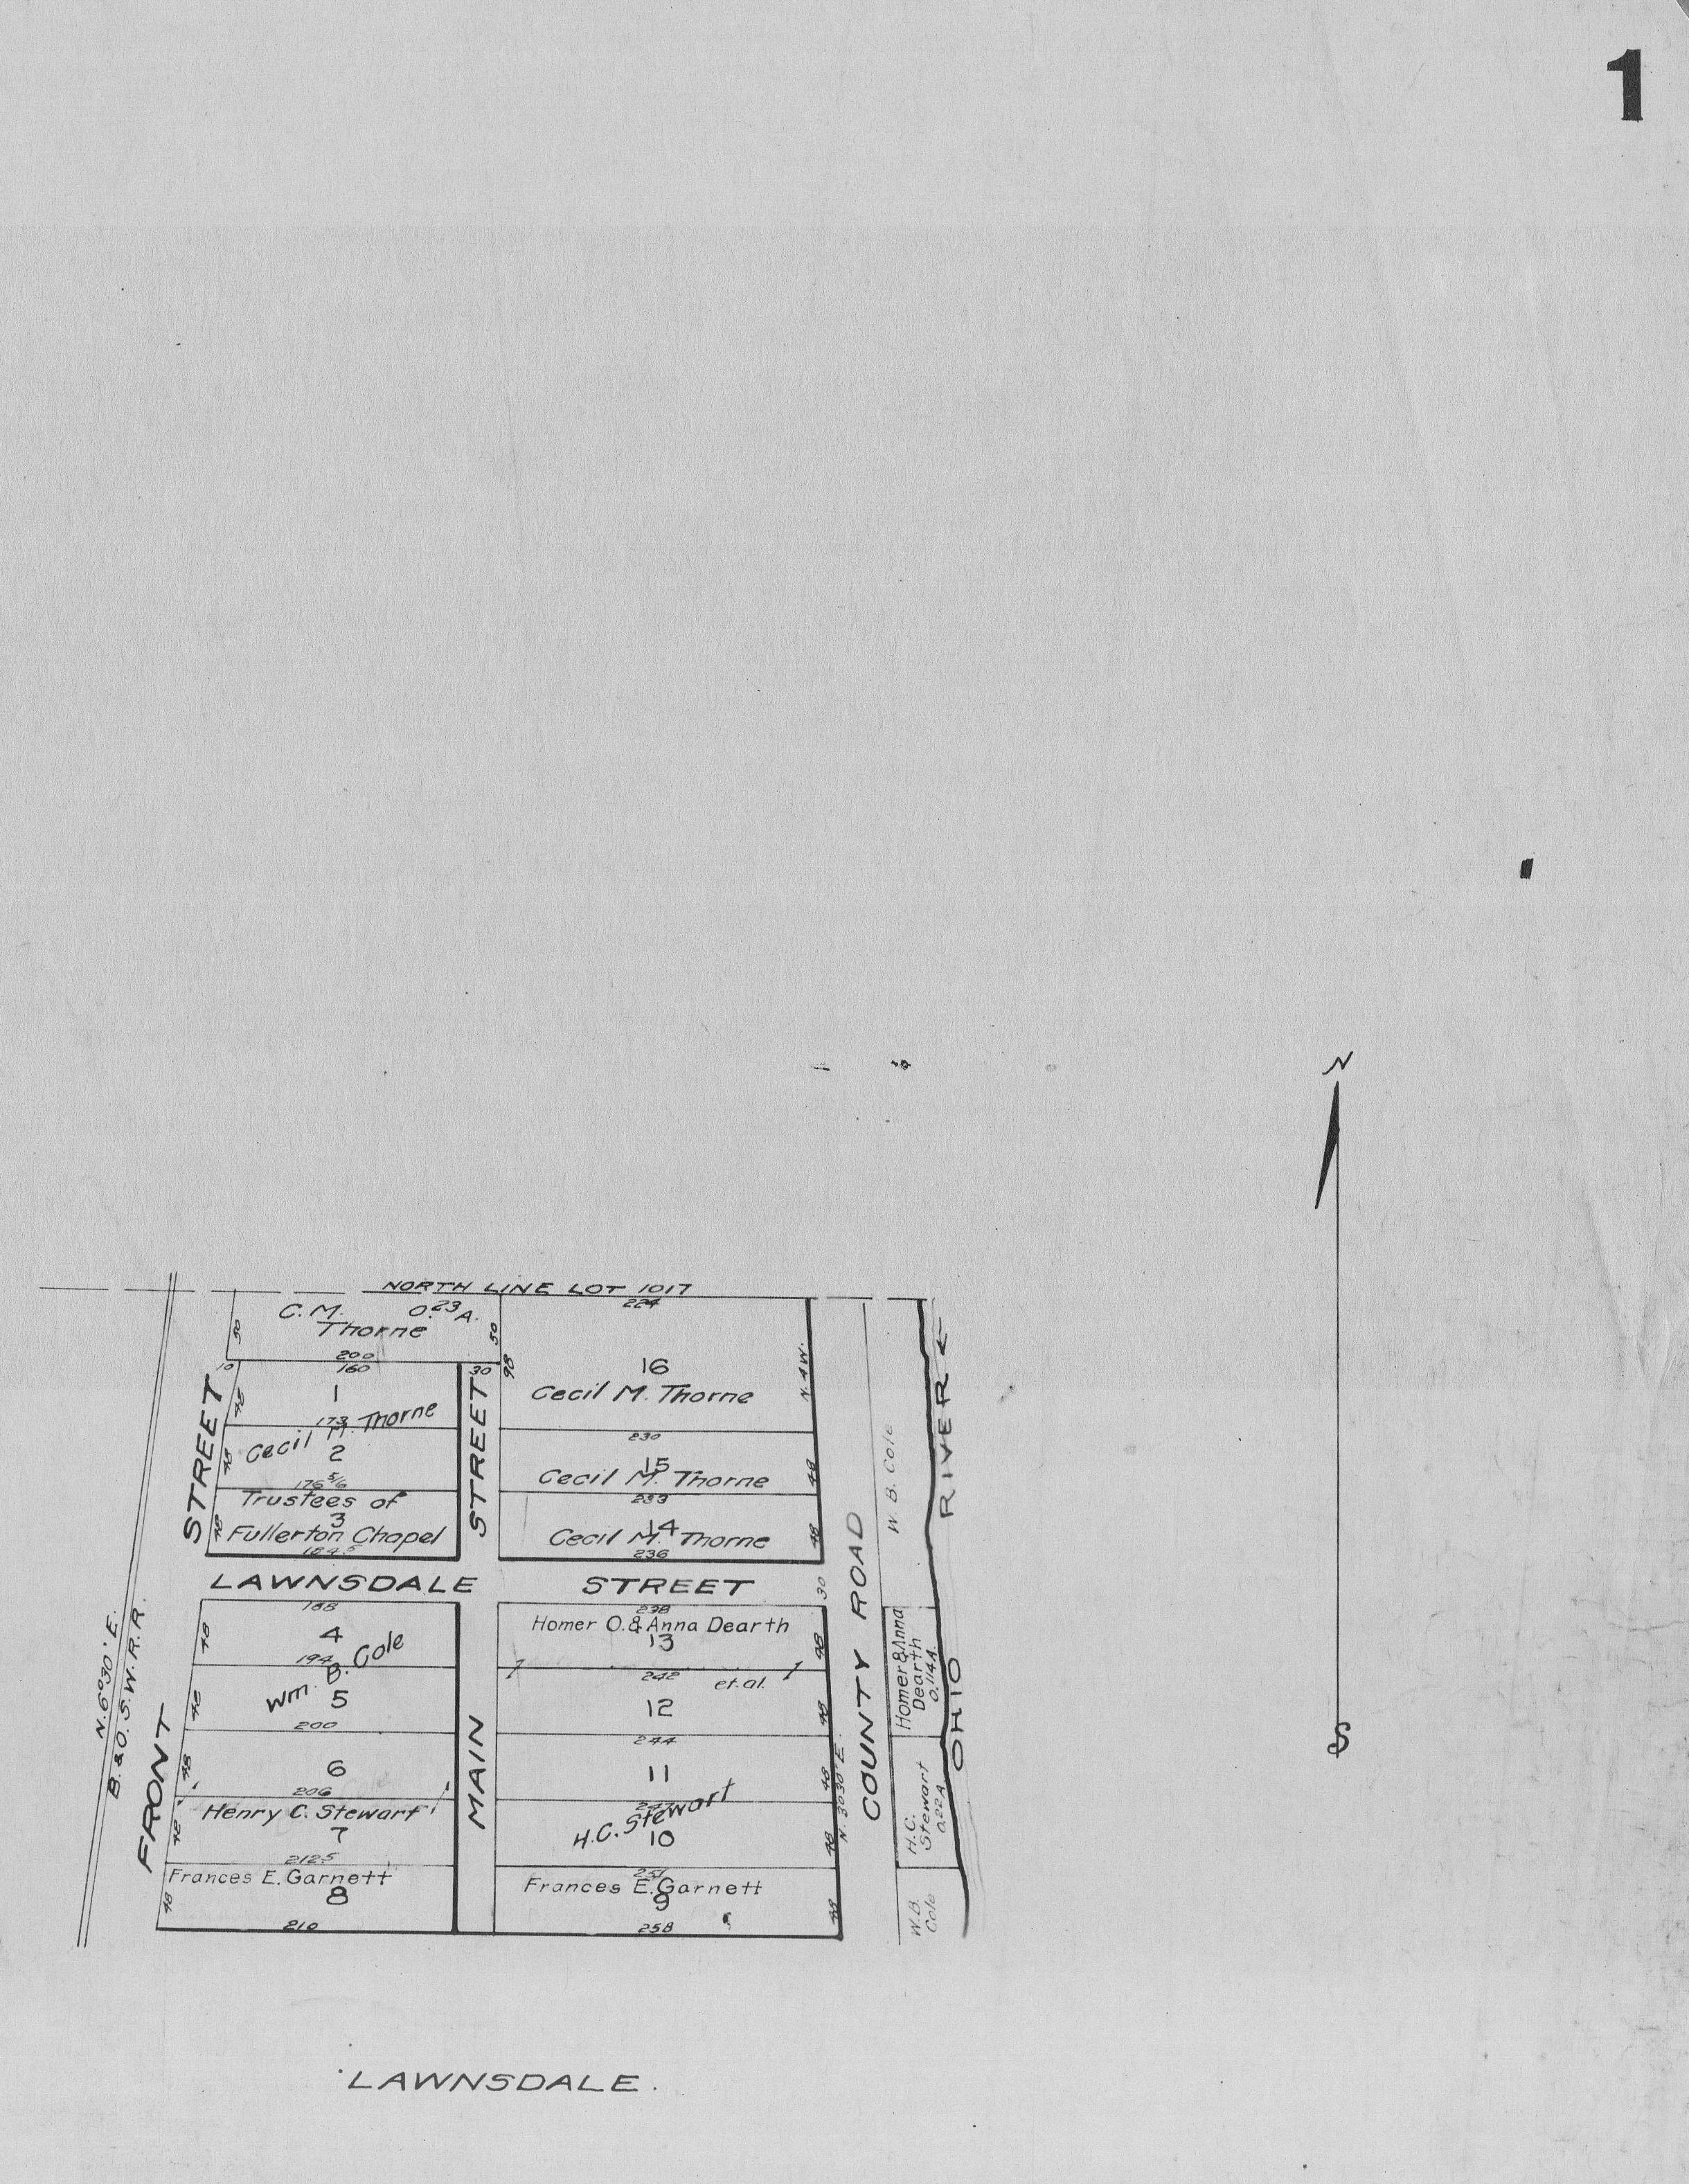 1
N
S
NORTH LINE LOT 1017
C.M. 0.23 A.
Thorne
50
50
200
224
10
160
30
98
1
48
173
Cecil M. Thorne
2
48
176 5/6
Trustees of
3
Fullerton Chapel
48
184.5
16
Cecil M. Thorne
N. 4 W.
230
15
Cecil M. Thorne
48
233
14
Cecil M. Thorne
48
236
STREET
STREET
LAWNSDALE STREET
30
188
4
48
194
Wm. B. Cole
5
48
200
6
48
206
Henry C. Stewart
7
48
212.5
Frances E. Garnett
8
48
210
238
Homer O. & Anna Dearth
13
48
242
et. al.
12
48
244
11
48
H.C. Stewart
10
48
251
Frances E. Garnett
9
48
258
FRONT
MAIN
N. 6° 30' E.
B. & O. S. W. R. R.
N. 3° 30' E.
COUNTY ROAD
W. B. Cole
Homer & Anna
Dearth
0.114 A.
H.C.
Stewart
0.22 A
W.B.
Cole
OHIO RIVER
LAWNSDALE.